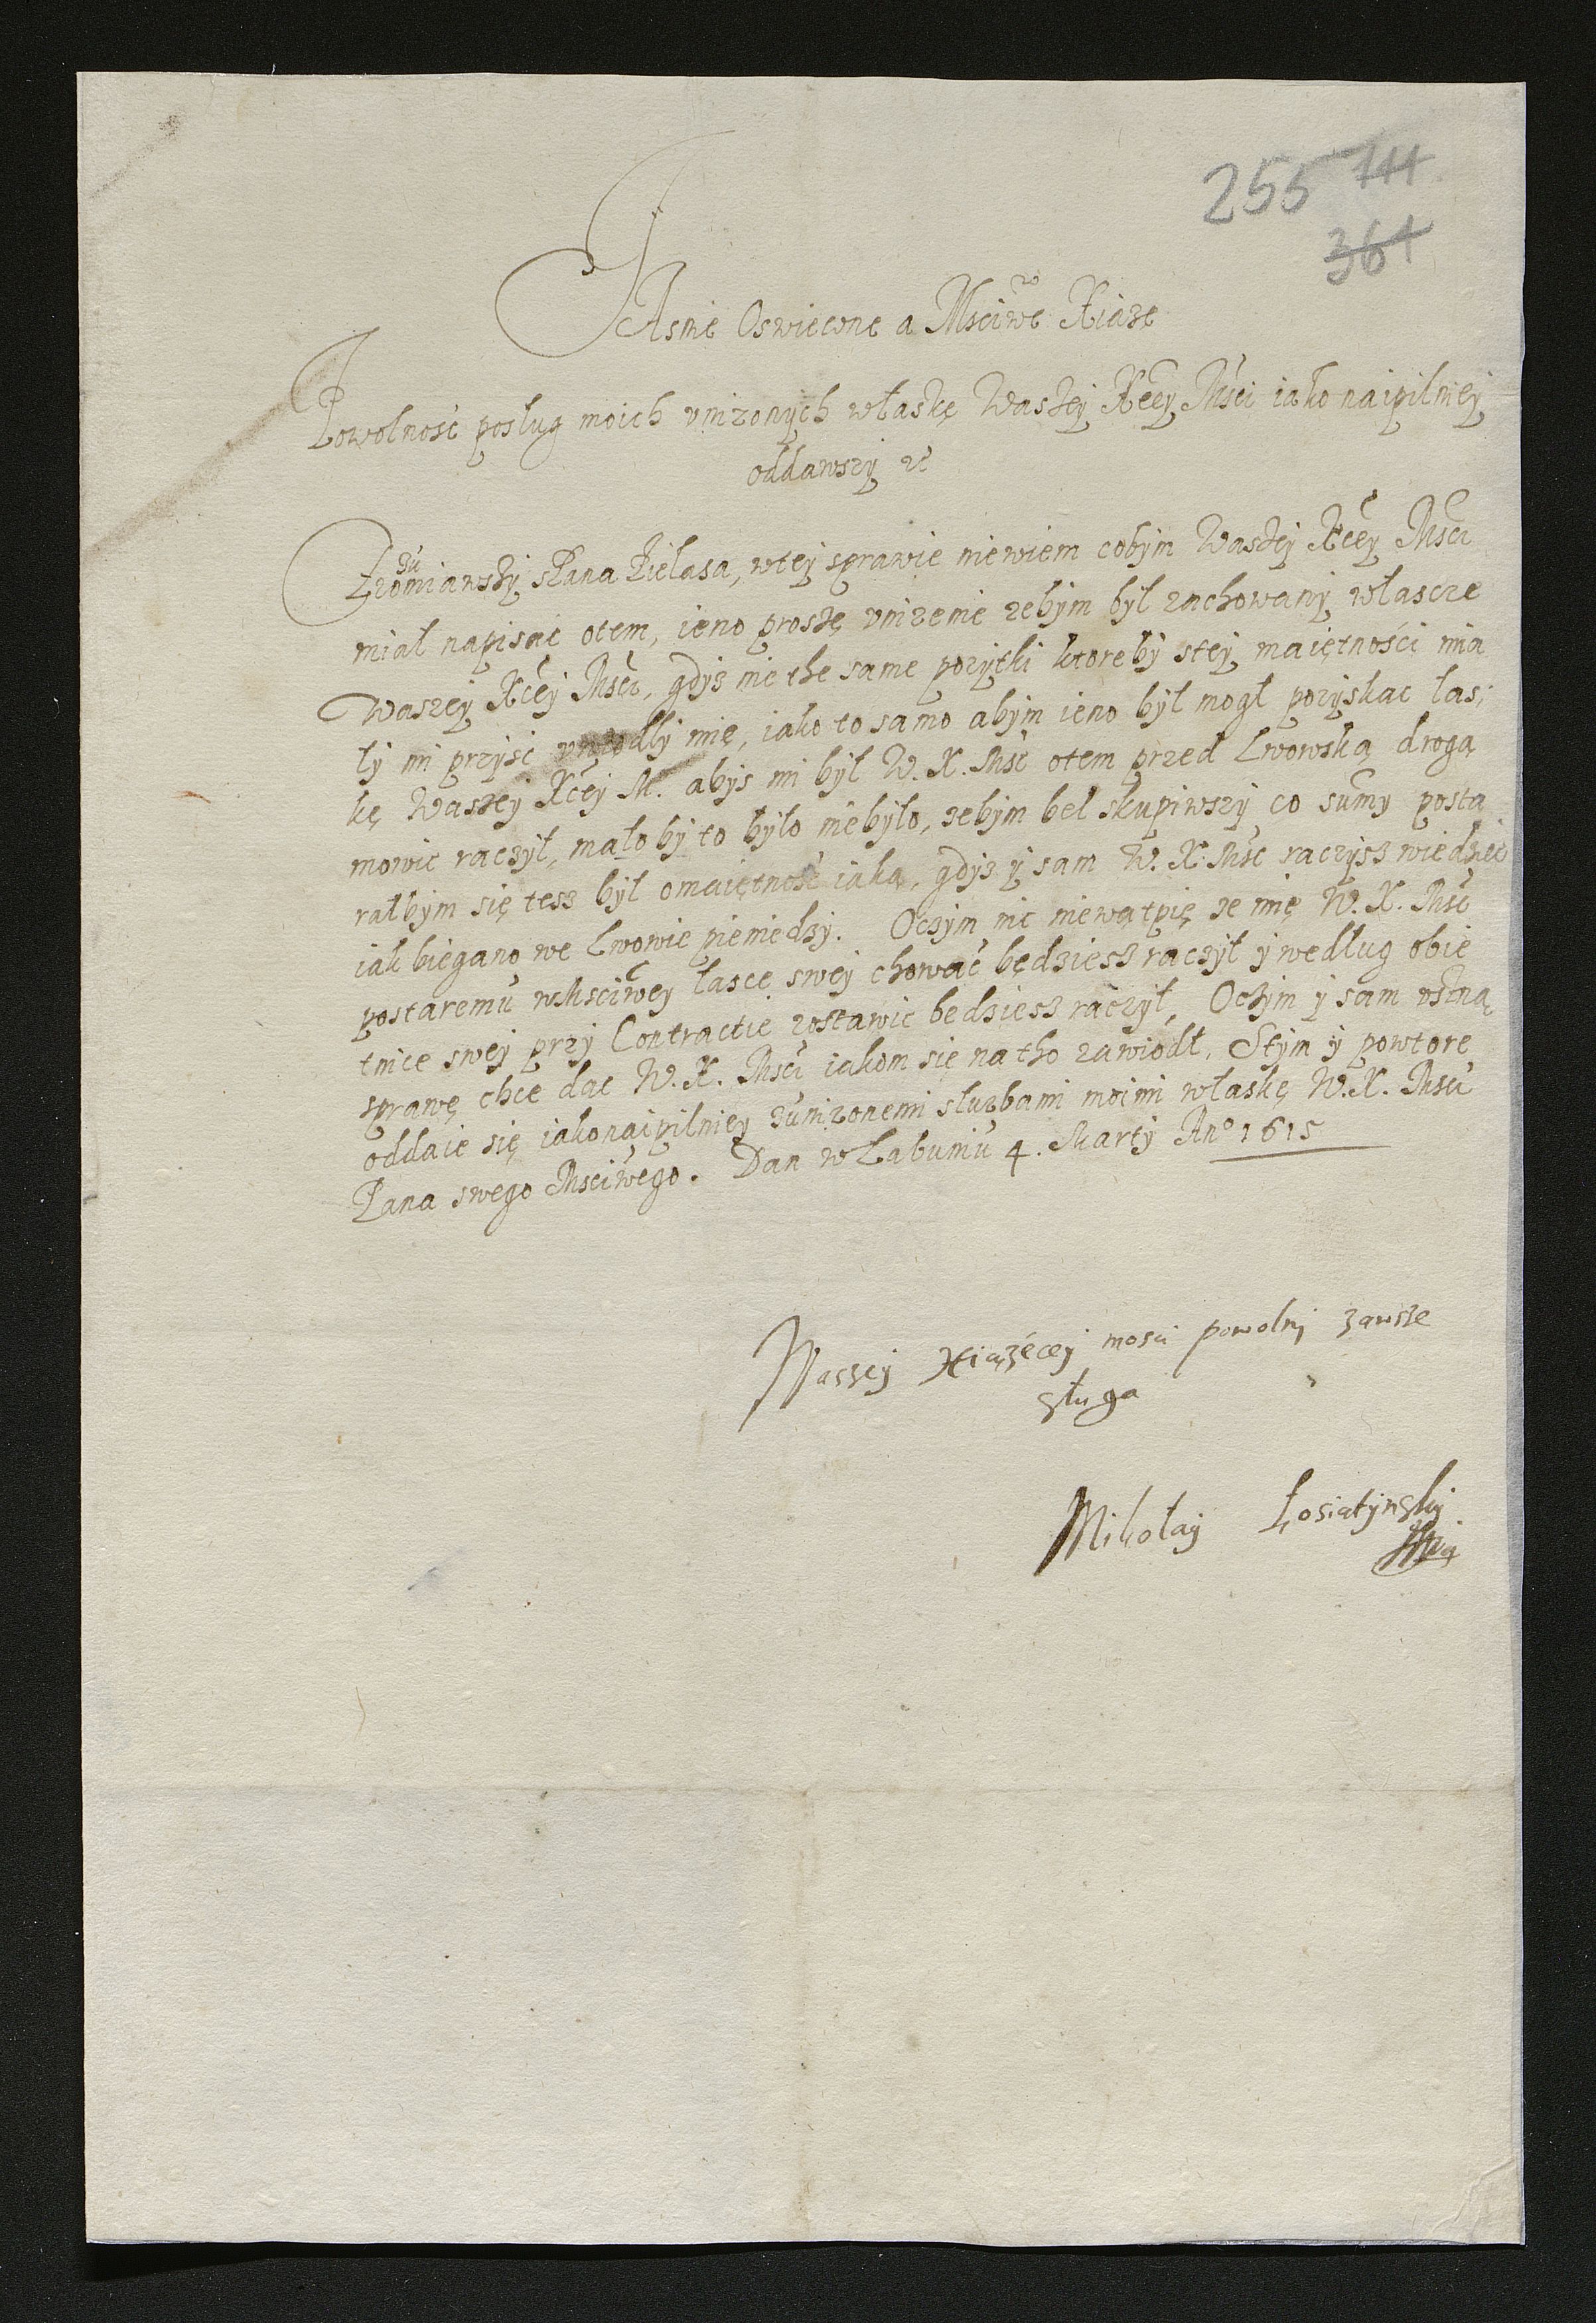 255 744
364
JAsnie Oswiecone a Mściwe Xiąże
Powolność posług moich vnizonych właskę Waszey Xcey Mści iako naipilniey
oddawszy etc
Zrozumiawszy sPana Zielasa, wtey sprawie niewiem cobym Waszey Xcey Mści
miał napisac otem, ieno proszę vnizenie zebym był zachowany włascze
Waszey Xcey Mści, gdyz nie the same pozytki ktoreby stey maiętności mia
ły mi przyść vwiodły mię, iako to samo abym ieno był mogł pozyskac łas;
kę Waszey Xcey M. abys mi był W. X. Mść otem przed Lwowską drogą
mowic raczył, mało by to było niebyło, zebym bel skupiwszy co summy posta
rałbym się tesz był omaiętność iaką, gdyz y sam W. X. Mść raczysz wiedzieć
iak biegano we Lwowie pieniedzy. Oczym nic niewątpię ze mię W. X. Mść
postaremu wMściwey łasce swey chować będziesz raczył y według obie
tnice swey przy Contractie zostawic bedziesz raczył, Oczym y sam vstną
sprawę chce dac W. X. Mści iakom się na tho zawiodł. Stym y powtore
oddaie się iakonaipilniey zunizonemi słuzbami moimi właskę W. X. Mści
Pana swego Mściwego. Dan w Łabuniu 4. Marty Ano 1615
Waszey Xiążęcey mosci powolny zawsze
sługa
Mikołay Łosiatynsky